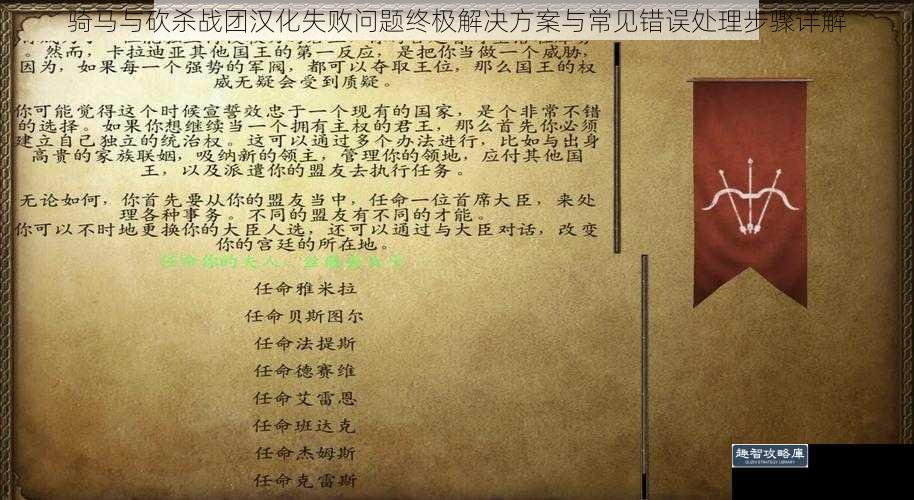 骑马与砍杀战团汉化失败问题终极解决方案与常见错误处理步骤详解
。然而，卡拉迪亚其他国王的第一反应，是把你当做一个威胁，
因为，如果每一个强势的军阀，都可以夺取王位，那么国王的权
威无疑会受到质疑。
你可能觉得这个时候宣誓效忠于一个现有的国家，是个非常不错
的选择。如果你想继续当一个拥有主权的君王，那么首先你必须
建立自己独立的统治权。这可以通过多个办法进行，比如与出身
高贵的家族联姻，吸纳新的领主，管理你的领地，应付其他国
王，以及派遣你的盟友去执行任务。
无论如何，你首先要从你的盟友当中，任命一位首席大臣，来处
理各种事务。不同的盟友有不同的才能。
你可以不时地更换你的大臣人选，还可以通过与大臣对话，改变
你的宫廷的所在地。
任命你的夫人，
任命雅米拉
任命贝斯图尔
任命法提斯
任命德赛维
任命艾雷恩
任命班达克
任命杰姆斯
任命克雷斯
趣智攻略库
QUZHI STRATEGY LIBRARY